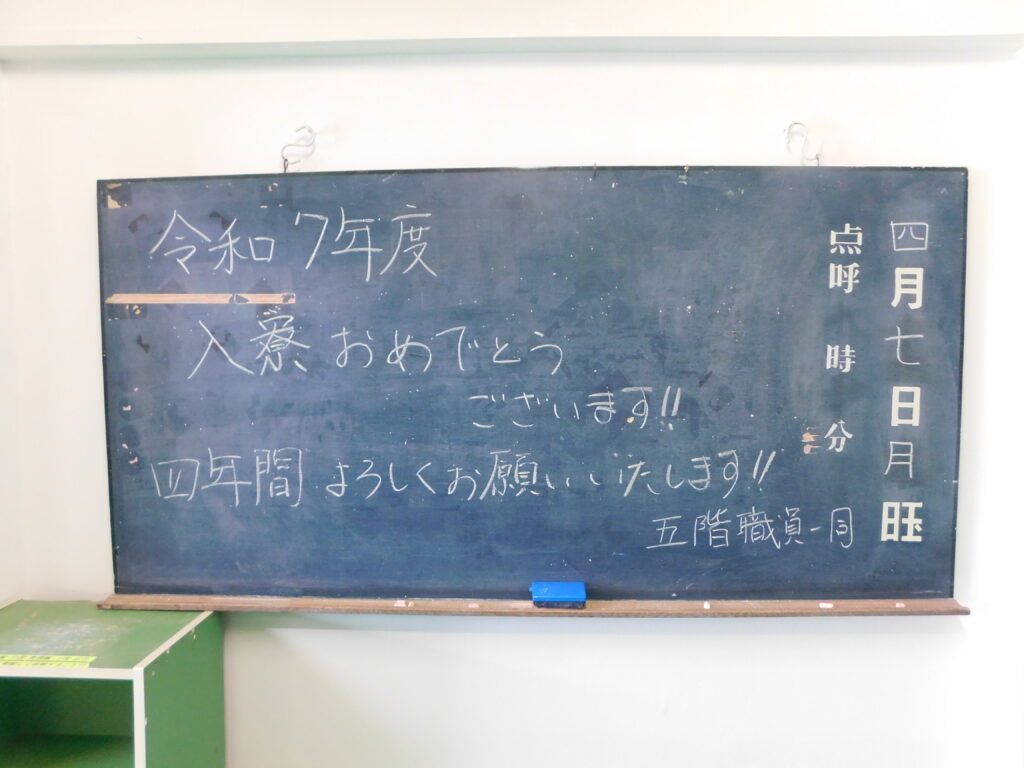 令和7年度
入寮おめでとう
ございます!!
四年間よろしくお願いいたします!!
五階職員一同
四月七日月旺
点呼 時 分